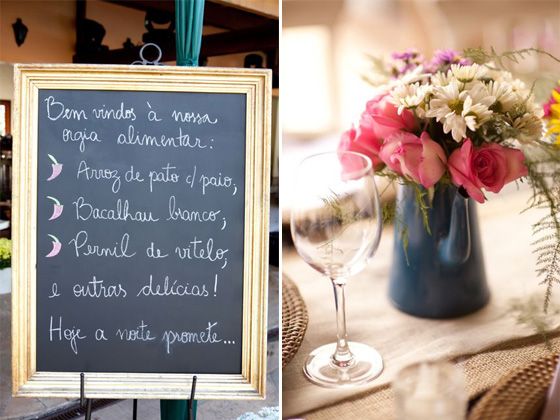 Bem vindos à nossa
orgia alimentar:
Arroz de pato c/ paio;
Bacalhau branco;
Pernil de vitelo;
e outras delícias!
Hoje a noite promete...